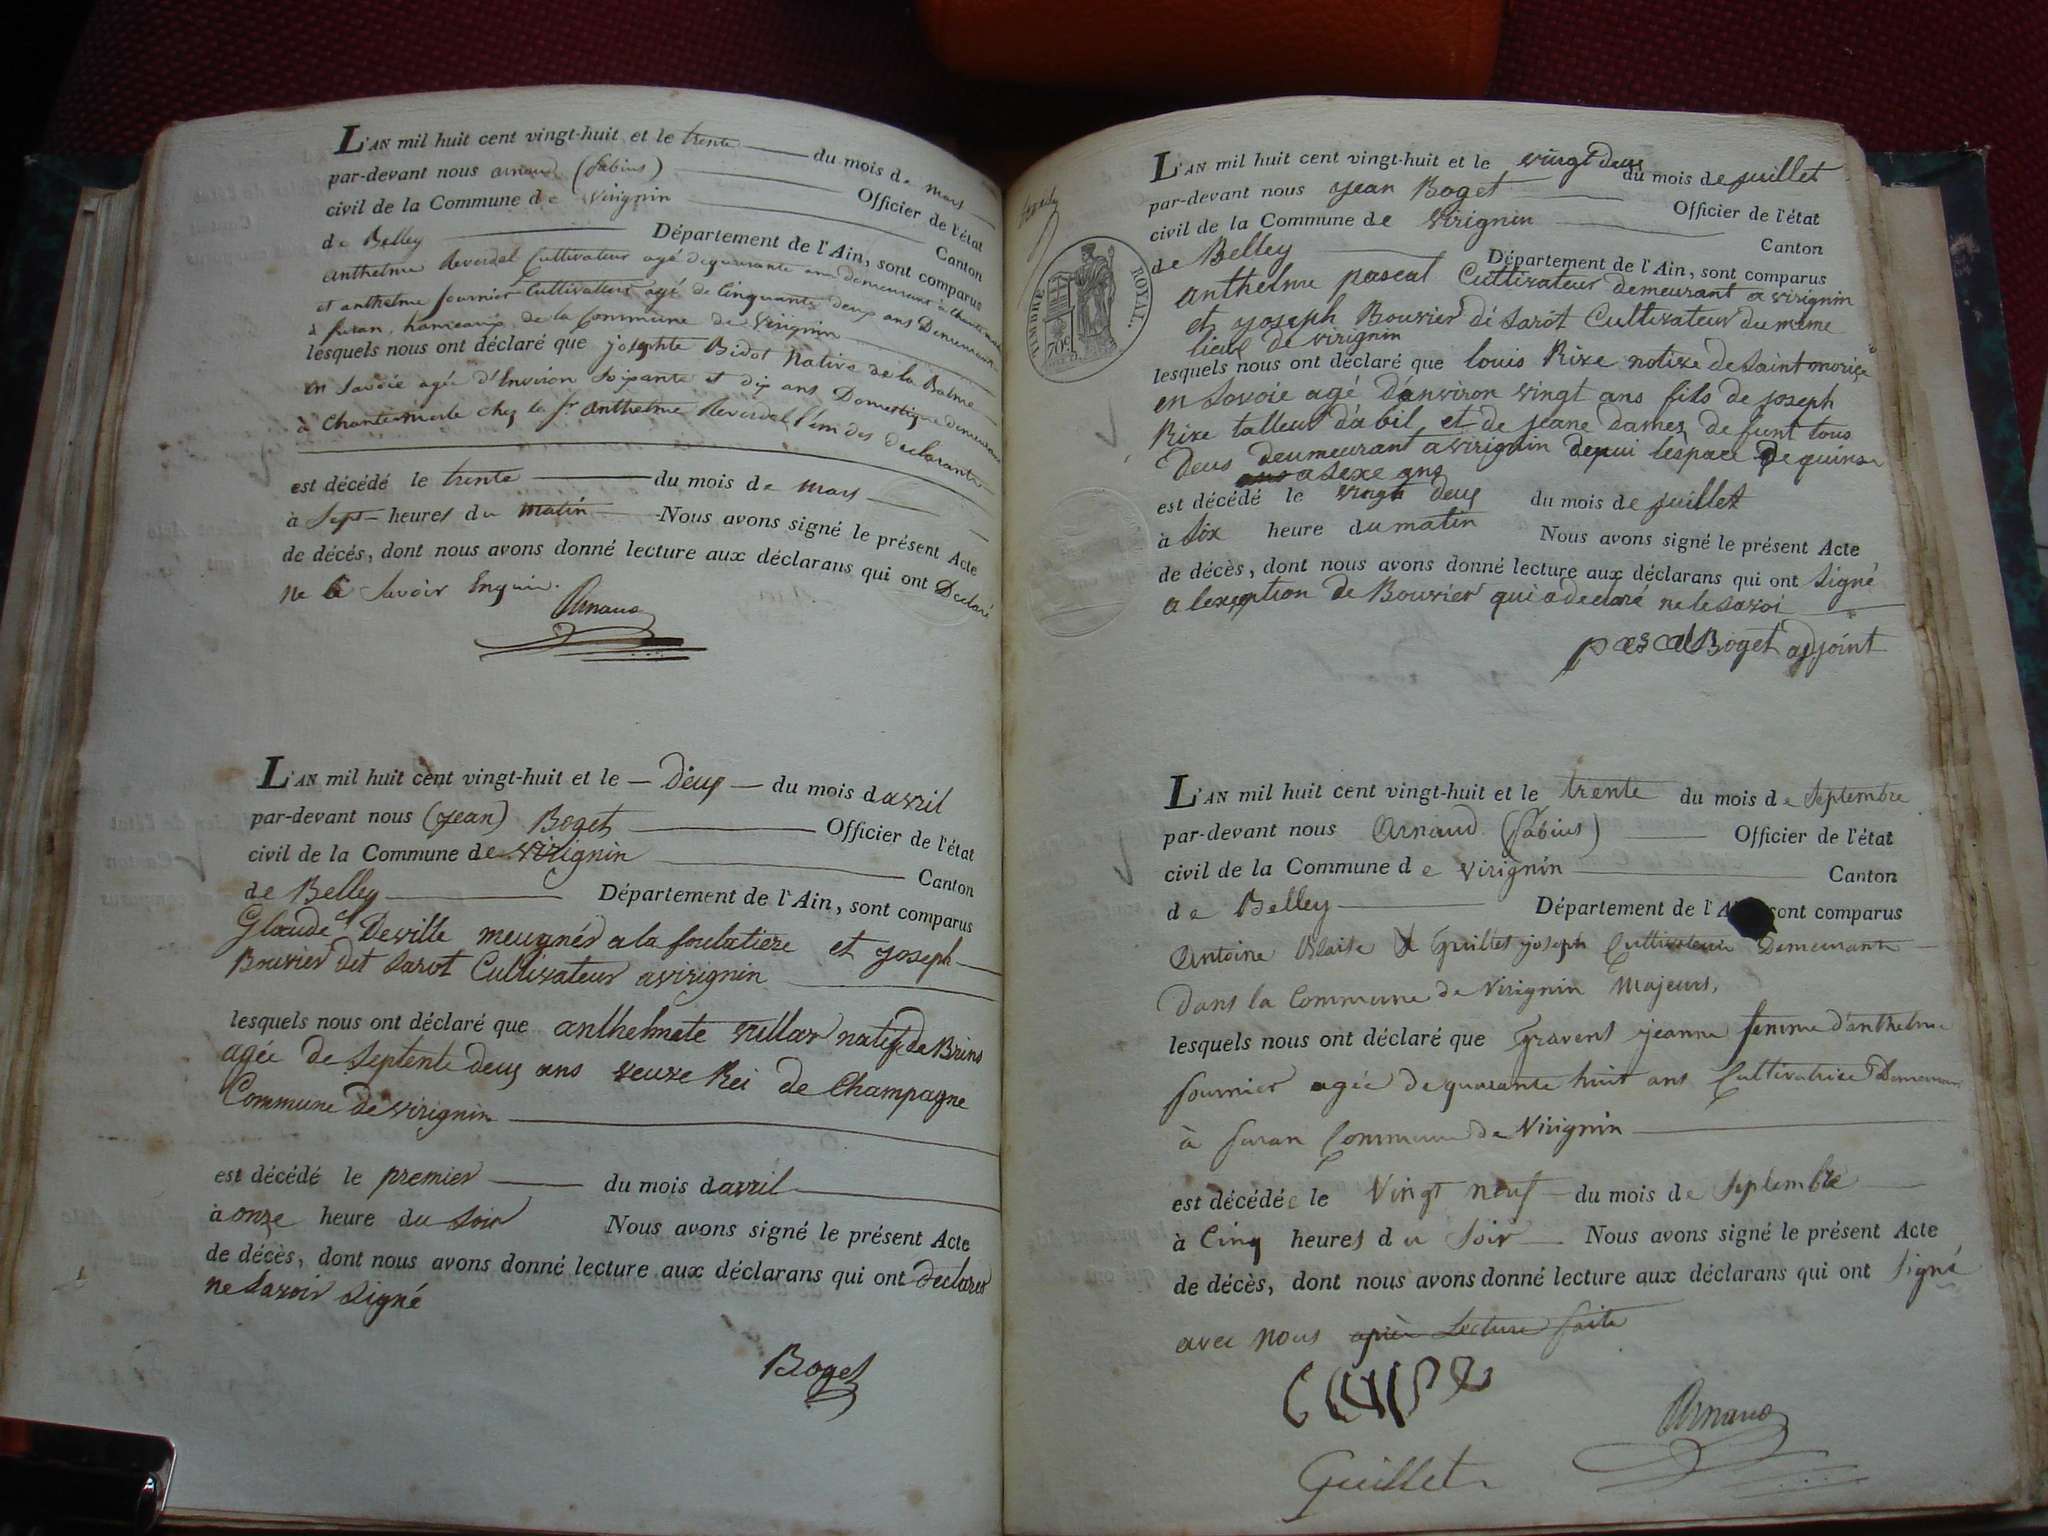 L'AN mil huit cent vingt-huit et le trente du mois de mars
par-devant nous arnaud (fabius) Officier de l'état
civil de la Commune de Virignin Canton
de Belley Département de l'Ain, sont comparus
anthelme Reverdel Cultivateur agé de quarante ans demeurant à Chantemerle
et anthelme fournier Cultivateur agé de Cinquante deux ans Demeurant
à furan, hameaux de la Commune de Virignin
lesquels nous ont déclaré que josephte Bidot Native de la Balme
en Savoie agée d'Environ Soixante et dix ans Domestique demeurant
à Chantemerle chez le Sr anthelme Reverdel l'un des declarants
est décédé le trente du mois de mars
à Sept heures du matin Nous avons signé le présent Acte
de décés, dont nous avons donné lecture aux déclarans qui ont Declaré
ne le Savoir Enquis.
Arnaud
L'AN mil huit cent vingt-huit et le Deux du mois d'avril
par-devant nous (jean) Boget Officier de l'état
civil de la Commune de virignin Canton
de Belley Département de l'Ain, sont comparus
Glaude Deville meugnés a la foulatiere et joseph
Bouvier dit Sarot Cultivateur a virignin
lesquels nous ont déclaré que anthelmete villar native de Brens
agée de Septente deux ans veuve Rei de Champagne
Commune de virignin
est décédé le premier du mois d'avril
à onze heure du Soir Nous avons signé le présent Acte
de décès, dont nous avons donné lecture aux déclarans qui ont declaré
ne Savoir Signé
Boget
TIMBRE ROYAL.
70c
L'AN mil huit cent vingt-huit et le vingt deux du mois de juillet
par-devant nous jean Boget Officier de l'état
civil de la Commune de virignin Canton
de Belley Département de l'Ain, sont comparus
anthelme pascal Cultivateur demeurant a virignin
et joseph Bouvier di Sarot Cultivateur du meme
lieux de virignin
lesquels nous ont déclaré que louis Rive notive de Saint moriçe
en Savoie agé d'anviron vingt ans fils de joseph
Rive talleur d'abil et de jeane dames de funt tous
Deus deumeurant a virignin depui l'espace de quinse
ans a sexe ans
est décédé le vingt deus du mois de juillet
à Six heure du matin Nous avons signé le présent Acte
de décès, dont nous avons donné lecture aux déclarans qui ont Signé
a lexseption de Bouvier qui a declaré ne le Savoi
pascal Boget adjoint
L'AN mil huit cent vingt-huit et le trente du mois de Septembre
par-devant nous Arnaud (fabius) Officier de l'état
civil de la Commune de Virignin Canton
de Belley Département de l'A sont comparus
Antoine Blaise & Guillet joseph Cultivateur Demeurant
Dans la Commune de Virignin Majeurs,
lesquels nous ont déclaré que Gravent jeanne femme d'anthelme
fournier agée de quarante huit ans Cultivatrice Demeurant
à furan Commune de Virignin
est décédée le Vingt neuf du mois de Septembre
à Cinq heures du Soir Nous avons signé le présent Acte
de décès, dont nous avons donné lecture aux déclarans qui ont Signé
avec nous après Lecture faite
Arnaud
Guillet